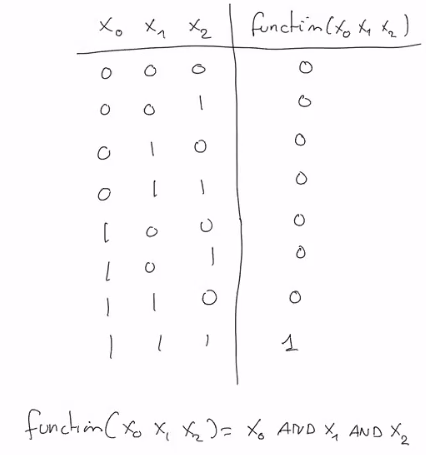 x₀ x₁ x₂ function(x₀ x₁ x₂)
0 0 0 0
0 0 1 0
0 1 0 0
0 1 1 0
1 0 0 0
1 0 1 0
1 1 0 0
1 1 1 1
function(x₀ x₁ x₂)= x₀ AND x₁ AND x₂